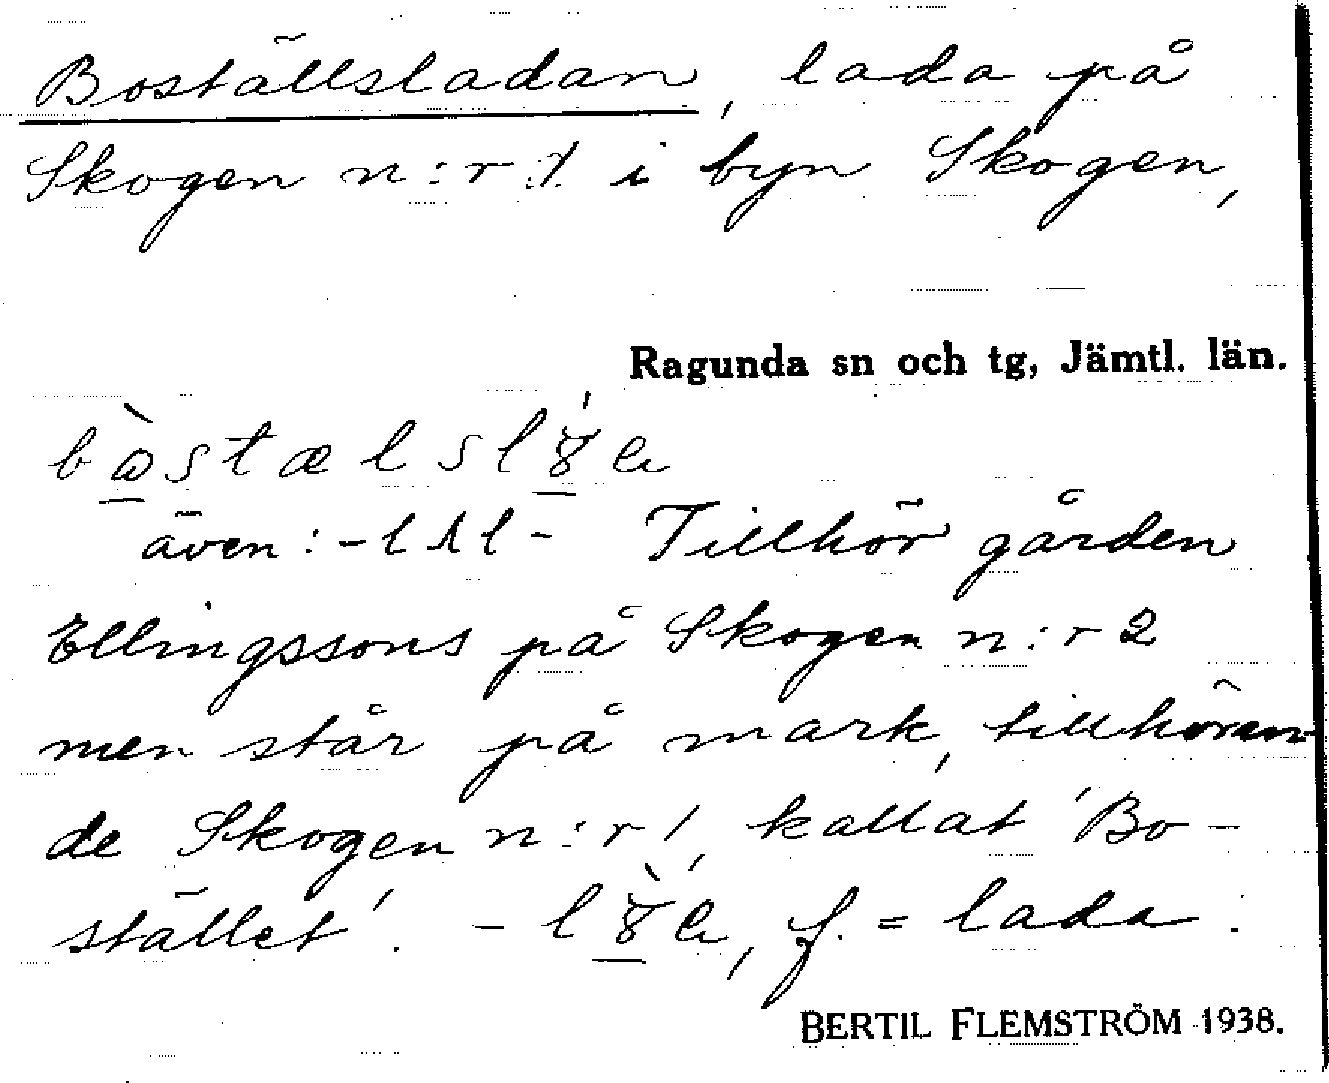 Boställsladan, lada på
Skogen n:r 1 i byn Skogen,
Ragunda sn och tg, Jämtl. län.
även: Tillhör gården
Ellingssons på Skogen n:r 2
men står på mark, tillhöran-
de Skogen n:r 1, kallat 'Bo-
stället'. f. = lada.
BERTIL FLEMSTRÖM 1938.